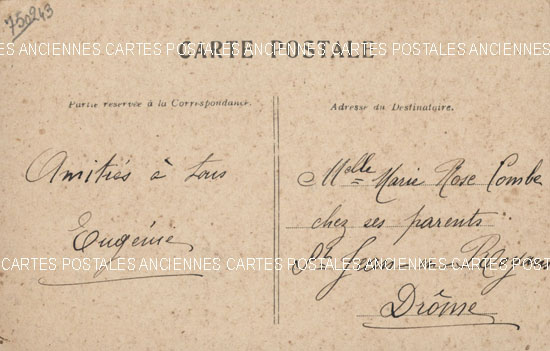 750243
ANCIENNES CARTES POSTALES ANCIENNES CARTES POSTALES ANCIENNES
CARTE POSTALE
Partie réservée à la Correspondance.
Adresse du Destinataire.
Amitiés à tous
Eugénie
Melle Marie Rose Combe
chez ses parents
St Jean
Drôme
CARTES POSTALES ANCIENNES CARTES POSTALES ANCIENNES CARTES